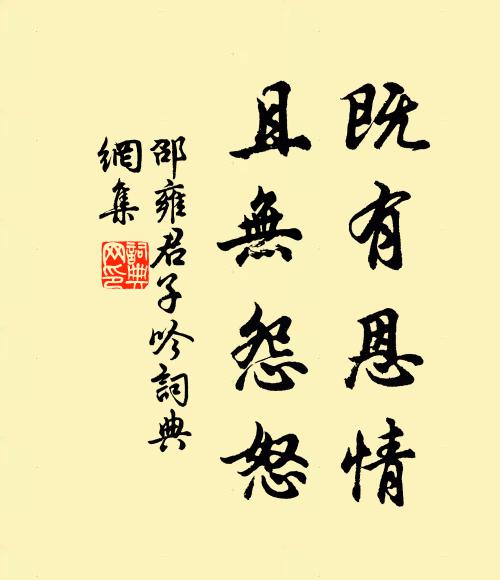 既有恩情
且無怨怒
邵雍君子吟詞典
網集
詞典網印